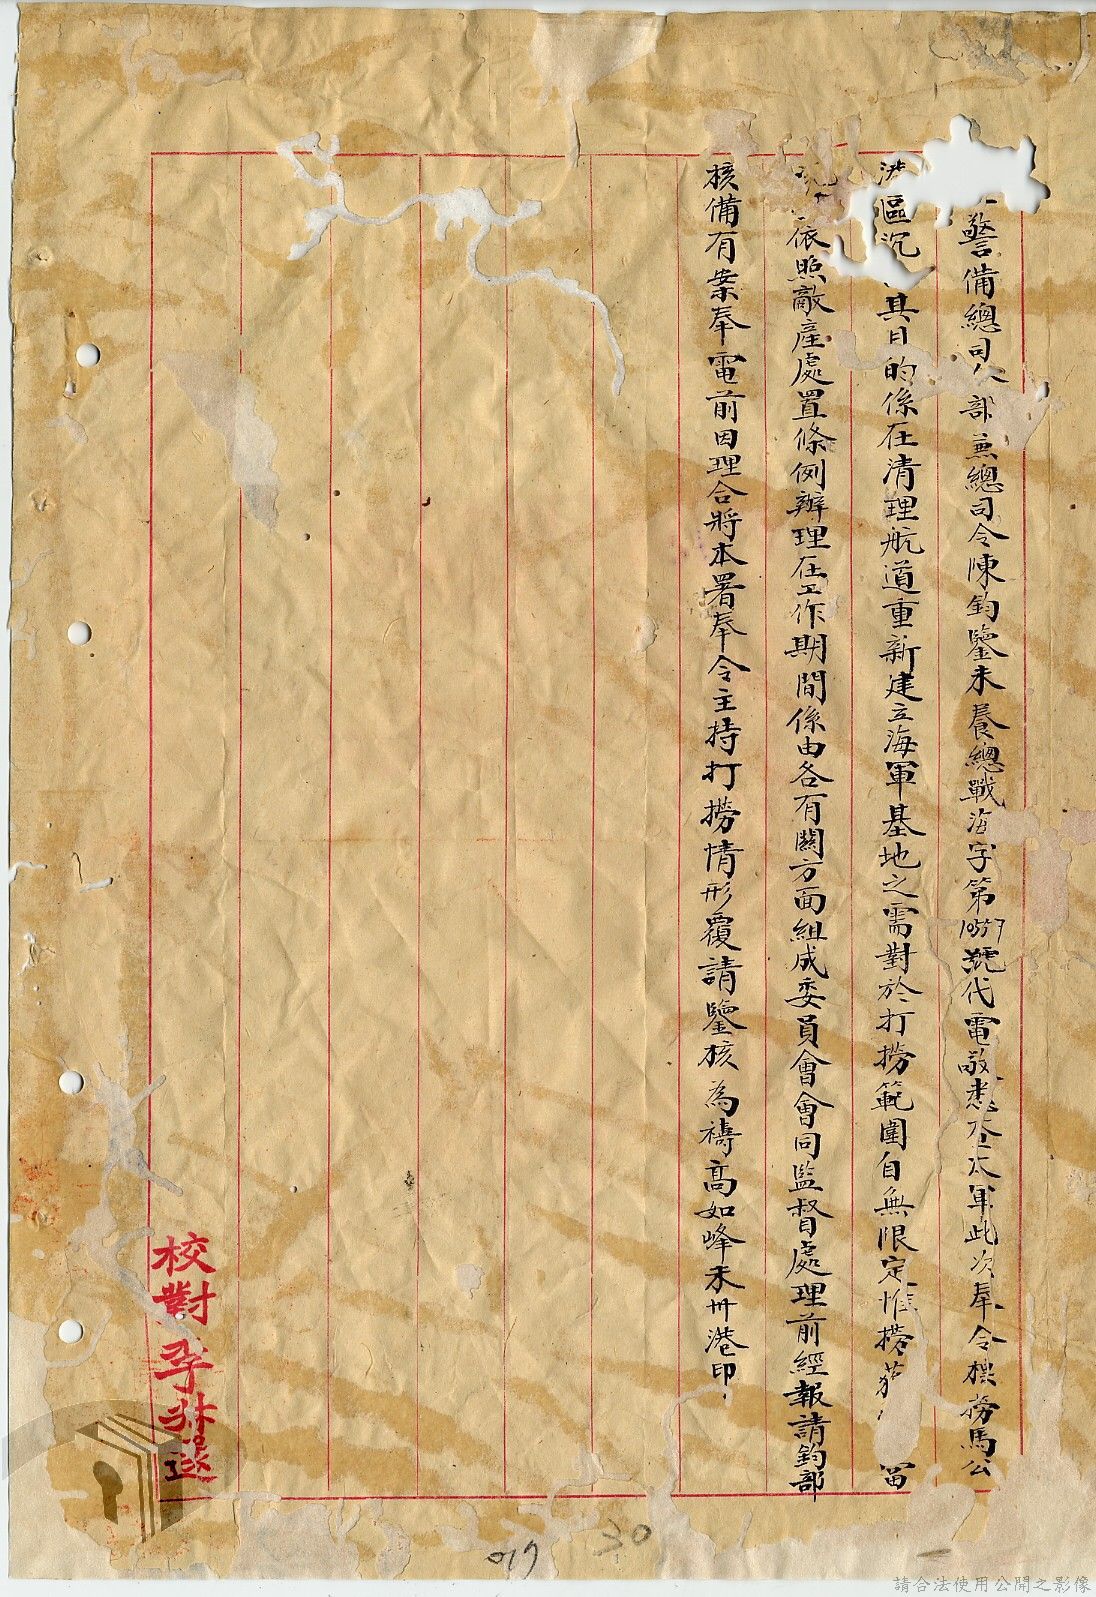 警備總司令部兼總司令陳鈞鑒未養總戰海字第10557號代電敬悉本軍此次奉令標撈馬公
港區沉其目的係在清理航道重新建立海軍基地之需對於打撈範圍自無限定惟撈獲當
依照敵產處置條例辦理在工作期間係由各有關方面組成委員會會同監督處理前經報請鈞部
核備有案奉電前因理合將本署奉令主持打撈情形覆請鑒核為禱高如峰未卅港印
校對
019 30
請合法使用公開之影像